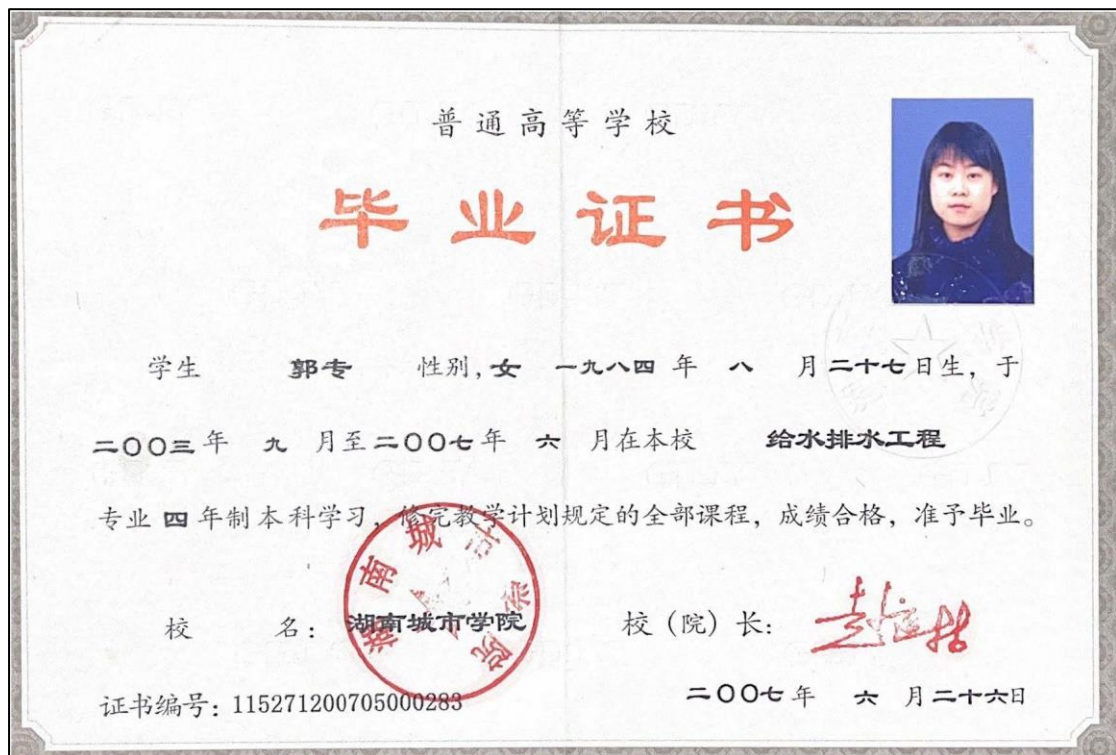 普通高等学校
毕业证书
学生 郭专 性别,女 一九八四年 八 月二十七日生,于
二〇〇三年 九 月至二〇〇七年 六 月在本校 给水排水工程
专业四年制本科学习,修完教学计划规定的全部课程,成绩合格,准予毕业。
湖南城市学院
校 名:湖南城市学院 校(院)长:
证书编号:115271200705000283 二〇〇七年 六 月二十六日